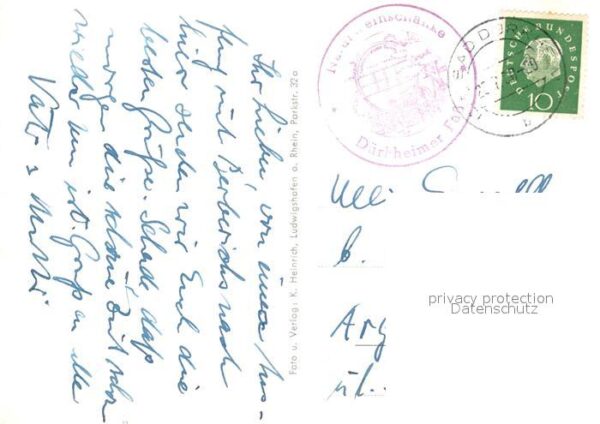 Ihr Lieben, von einem Aus-
flug mit Berberichs nach
hier senden wir Euch die
besten Grüße. Schade daß
morgen die schöne Zeit schon
wieder um ist. Gruß an alle
Vater & Mutti
Foto u. Verlag: K. Heinrich, Ludwigshafen a. Rhein, Parkstr. 32a
Dürkheimer Faß
DEUTSCHE BUNDESPOST
10
b
Ulli
b.
privacy protection
Datenschutz